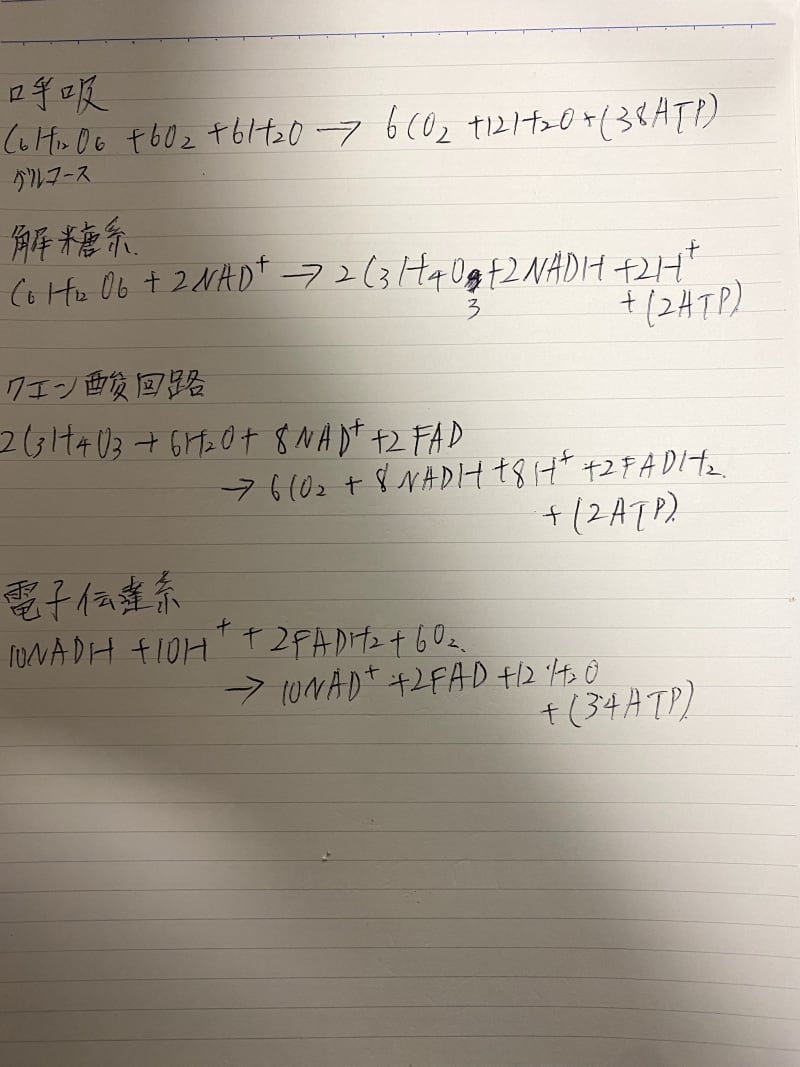 呼吸
C6H12O6 + 6O2 + 6H2O → 6CO2 + 12H2O + (38ATP)
グルコース
解糖系.
C6H12O6 + 2NAD+ → 2C3H4O3 + 2NADH + 2H+
+ (2ATP)
クエン酸回路
2C3H4O3 + 6H2O + 8NAD+ + 2FAD
→ 6CO2 + 8NADH + 8H+ + 2FADH2.
+ (2ATP).
電子伝達系
10NADH + 10H+ + 2FADH2 + 6O2.
→ 10NAD+ + 2FAD + 12H2O
+ (34ATP).